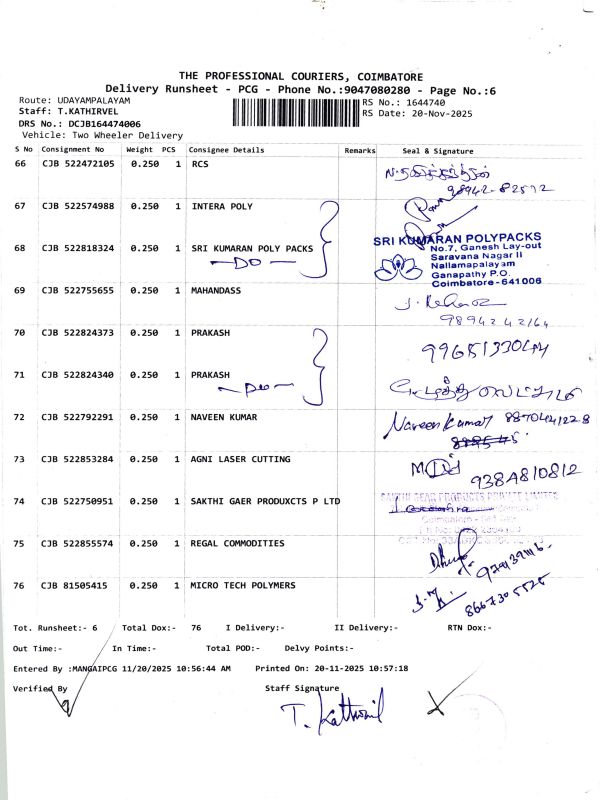 THE PROFESSIONAL COURIERS, COIMBATORE
Delivery Runsheet - PCG - Phone No.:9047080280 - Page No.:6
Route: UDAYAMPALAYAM
Staff: T.KATHIRVEL
DRS No.: DCJB164474006
Vehicle: Two Wheeler Delivery
RS No.: 1644740
RS Date: 20-Nov-2025
S No Consignment No Weight PCS Consignee Details Remarks Seal & Signature
66 CJB 522472105 0.250 1 RCS
98942-82512
67 CJB 522574988 0.250 1 INTERA POLY
68 CJB 522818324 0.250 1 SRI KUMARAN POLY PACKS
DO
SRI KUMARAN POLYPACKS
No.7, Ganesh Lay-out
Saravana Nagar II
Nallamapalayam
Ganapathy P.O.
Coimbatore - 641006
69 CJB 522755655 1 0.250 MAHANDASS
9894242164
70 CJB 522824373 0.250 1 PRAKASH
71 CJB 522824340 0.250 1 PRAKASH
DO
72 CJB 522792291 0.250 1 NAVEEN KUMAR Naveen Kumar
73 CJB 522853284 0.250 1 AGNI LASER CUTTING
74 CJB 522750951 0.250 1 SAKTHI GAER PRODUXCTS P LTD
SAKTHI GEAR PRODUCTS PRIVATE LIMITED
75 CJB 522855574 0.250 1 REGAL COMMODITIES
76 CJB 81505415 0.250 1 MICRO TECH POLYMERS
8667305525
Tot. Runsheet:- 6 Total Dox:- 76 I Delivery:- II Delivery:- RTN Dox:-
Out Time:- In Time:- Total POD:- Delvy Points:-
Entered By :MANGAIPCG 11/20/2025 10:56:44 AM Printed On: 20-11-2025 10:57:18
Verified By Staff Signature
T. Kathirvel